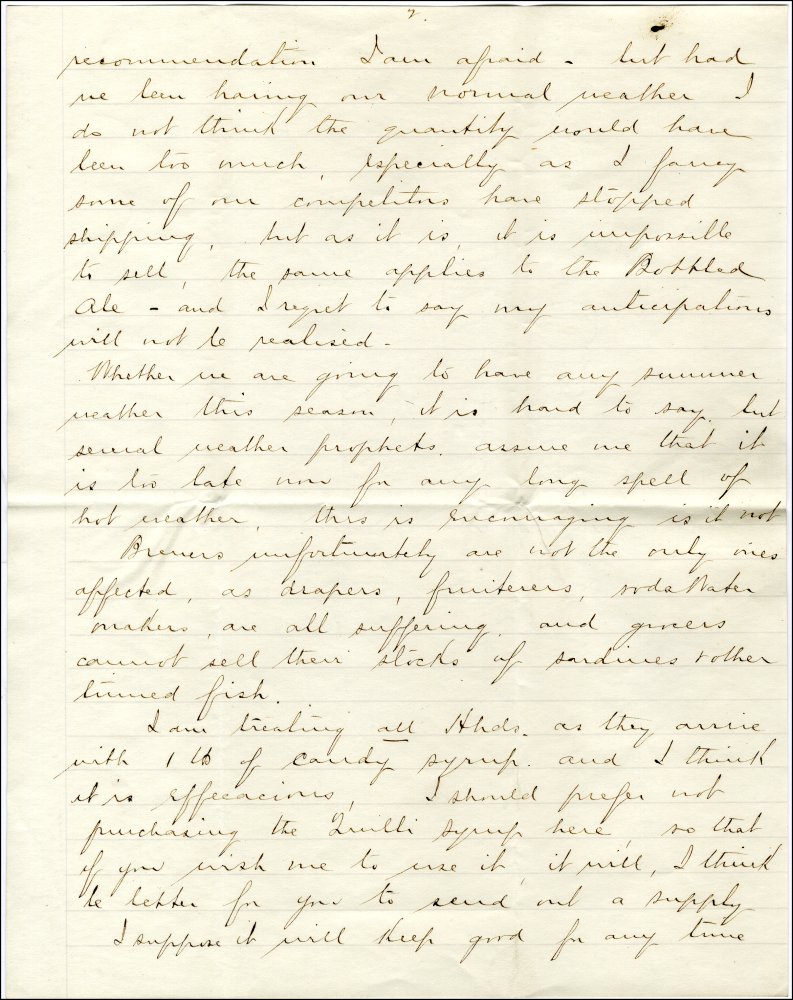 2.
recommendation I am afraid - but had
we been having our normal weather I
do not think the quantity would have
been too much, especially as I fancy
some of our competitors have stopped
shipping, but as it is, it is impossible
to sell, the same applies to the Bottled
Ale - and I regret to say my anticipations
will not be realised -
Whether we are going to have any summer
weather this season, it is hard to say, but
several weather prophets, assure me that it
is too late now for any long spell of
hot weather, this is encouraging is it not
Brewers unfortunately are not the only ones
affected, as drapers, fruiterers, soda Water
makers, are all suffering, and grocers
cannot sell their stocks of sardines & other
tinned fish.
I am treating all Hhds. as they arrive
with 1 lb of candy syrup. and I think
it is effecacious, I should prefer not
purchasing the syrup here, so that
if you wish me to use it, it will, I think
be better for you to send out a supply
I suppose it will keep good for any time